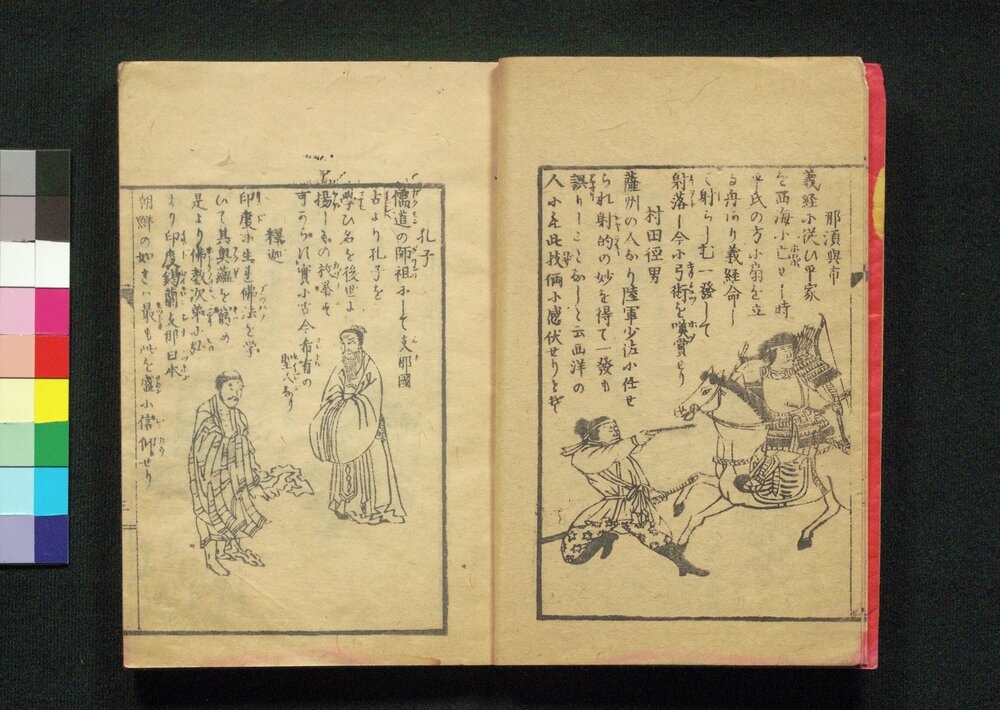 那須與市
義経小従ひ平家
を西海小亡せし時
平氏の方小扇を立
る舟あり義経命し
て射らしむ一發して
射落し今小弓術を嘆賞せり
村田徑男
薩州の人なり陸軍少佐小任せ
られ射的の妙を得て一發も
誤りしことなしと云西洋の
人小も此技倆小感伏せりとぞ
孔子
儒道の師祖小して支那國
古より孔子を
學ひ名を後世よ
揚しもの
實小古今希有の
聖人なり
釋迦
印度小生連佛法を学
いて其奥蘊を窮め
是より佛教次第小
より印度錫蘭支那日本
朝鮮の如きハ最も此を盛小信仰せり